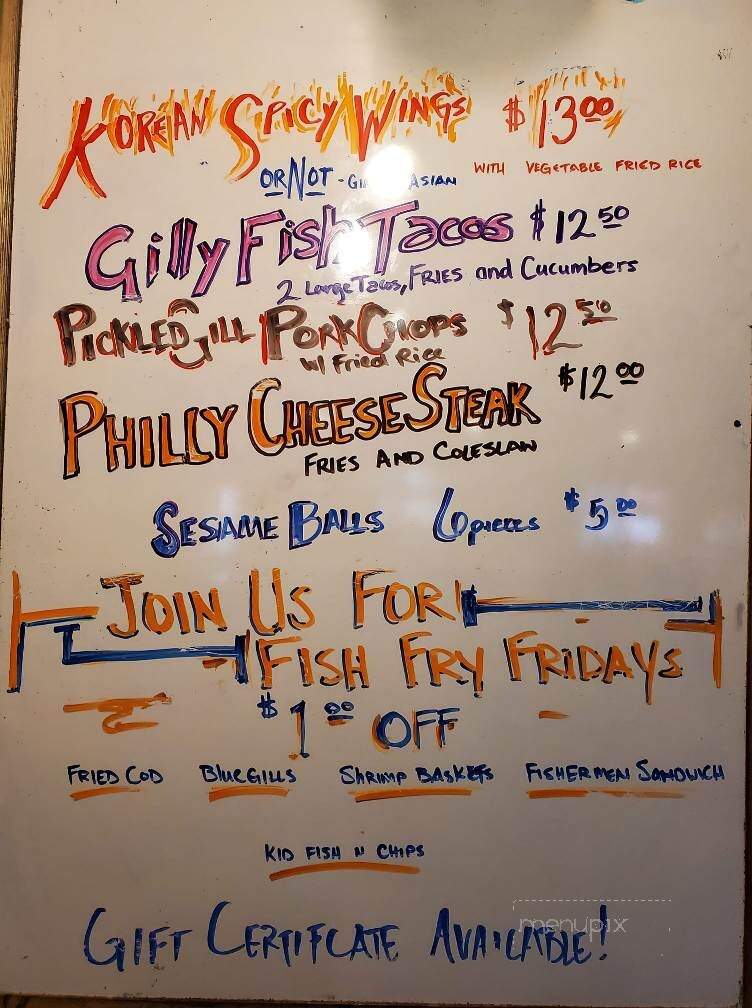 KOREAN SPICY WINGS $13.00
WITH VEGETABLE FRIED RICE
OR NOT - ASIAN
Gilly Fish Tacos $12.50
2 Large Tacos, FRIES and Cucumbers
PICKLED GILL PORK CHOPS $12.50
w/ Fried Rice
PHILLY CHEESE STEAK $12.00
FRIES AND COLESLAW
SESAME BALLS 6 pieces $5.00
JOIN US FOR
FISH FRY FRIDAYS
$1.00 OFF
FRIED COD BLUEGILLS SHRIMP BASKETS FISHERMEN SANDWICH
KID FISH N CHIPS
GIFT CERTIFCATE AVAILABLE!
menupix